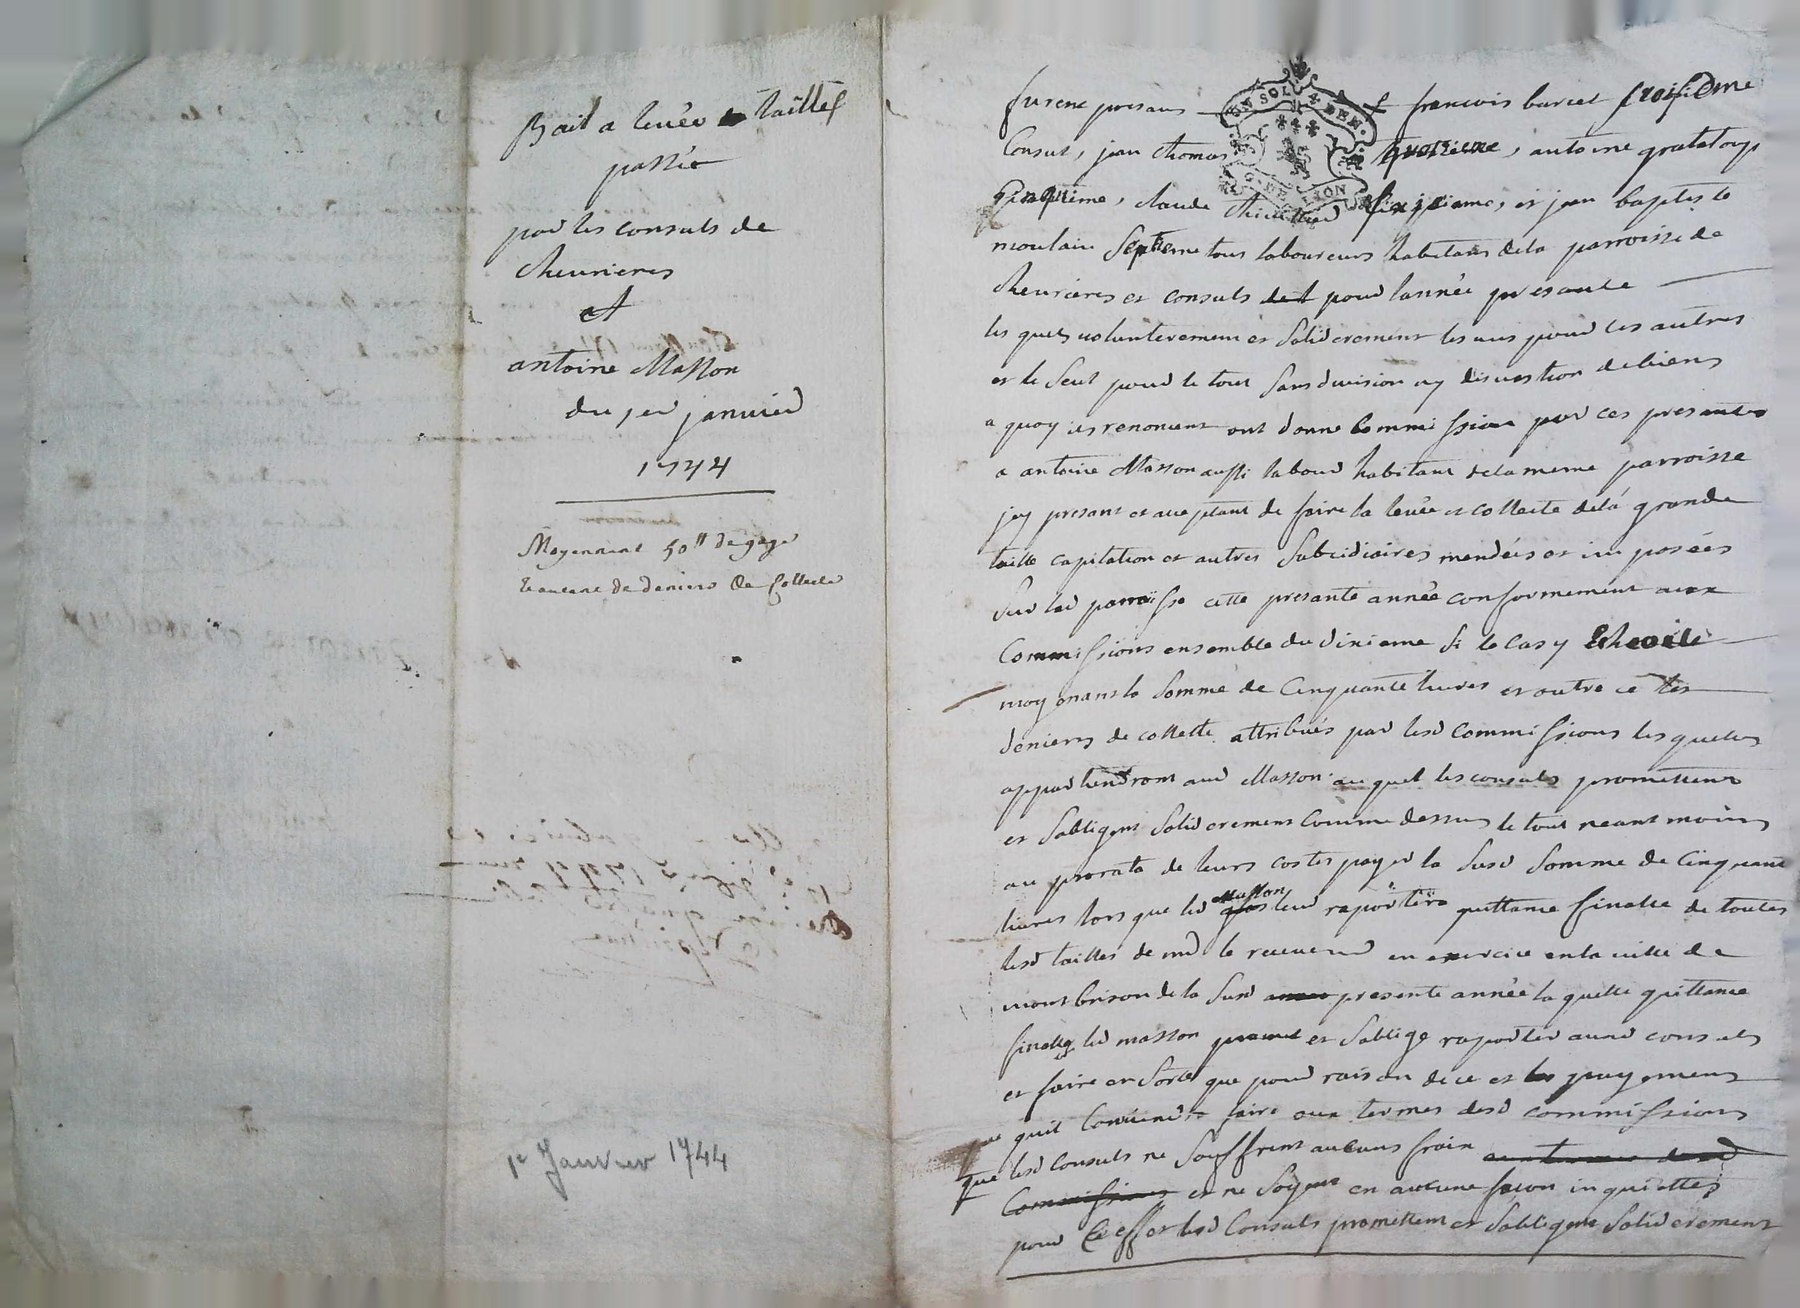 Bail a levée de tailles
passée
par les consuls de
chevrieres
et
antoine Masson
du 1er janvier
1744
Moyennent 50ll de gage
de deniers de Collecte
1e Janvier 1744
furent presans francois barcet troisieme
UN SOL 4 DEN.
G. DE LION
Consul, jean thomas quatrieme, antoine grataloup
Cinquieme, claude sixsieme, et jean baptiste
moulain Septieme tous laboureurs habitans de la parroisse de
chevrieres et consuls pour lannée presante
les quels volonterement et Soliderement les uns pour les autres
et le Seul pour le tout Sans division ny discution de biens
a quoy ils renoncent ont donne Commission par ces presantes
a antoine Masson aussi labour habitant de la meme parroisse
jcy presant et aceptant de faire la levée et collecte de la grande
taille capitation et autres Subsidiaires mendées et imposées
Sur lad parroisse cette presante année conformement aux
Commissions ensemble du dixieme Si le cas y Echeoile
moyenant la Somme de Cinquante livres et outre ce les
deniers de collette attribués par lesd Commissions les quelles
appartiendront aud Masson au quel les consuls promettent
et Sobligent Soliderement Comme dessus le tout neant moins
au prorata de leurs costes payer la Susd Somme de Cinquante
livres lors que led Masson leur raportera quittance finalle de toutes
lesd tailles de mr le receveur en exercice en la ville de
montbrison de la Susd presente année la quelle quittance
finalle led masson promet et Soblige raporter aund consuls
et faire en Sorte que pour raison de ce et les payement
quil Conviendra faire aux termes desd commissions
que lesd Consuls ne Souffrent aucuns frais aux termes desd
Commissions et ne Soyent en aucune facon inquiettes
pour Cet effet lesd Consuls promettent et Sobligent Soliderement